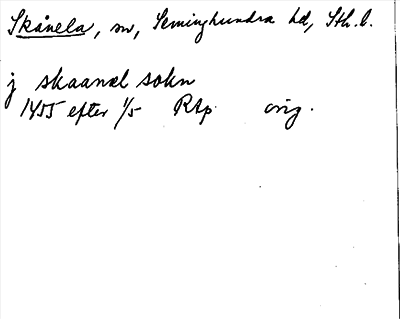 Skånela, sn, Seminghundra hd, Sth.l.
j skaanæl sokn
1455 efter 1/5 RAp orig.